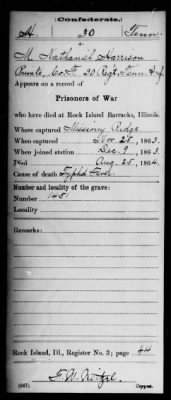 (Confederate.)
H. 20 Tenn.
M. Nathaniel Harrison
Private, Co. F. 20 Regt. Tenn. Inf.
Appears on a record
of
Prisoners of War
who have died at Rock Island Barracks, Illinois.
Where captured Missionry Ridge
When captured Nov. 25, 1863.
When joined station Dec. 9, 1863.
Died Aug. 25, 1864.
Cause of death Typhd Fever
Number and locality of the grave:
Number 1451
Locality
Remarks:
Rock Island, Ill., Register No. 3; page 44
(867) Copyist.